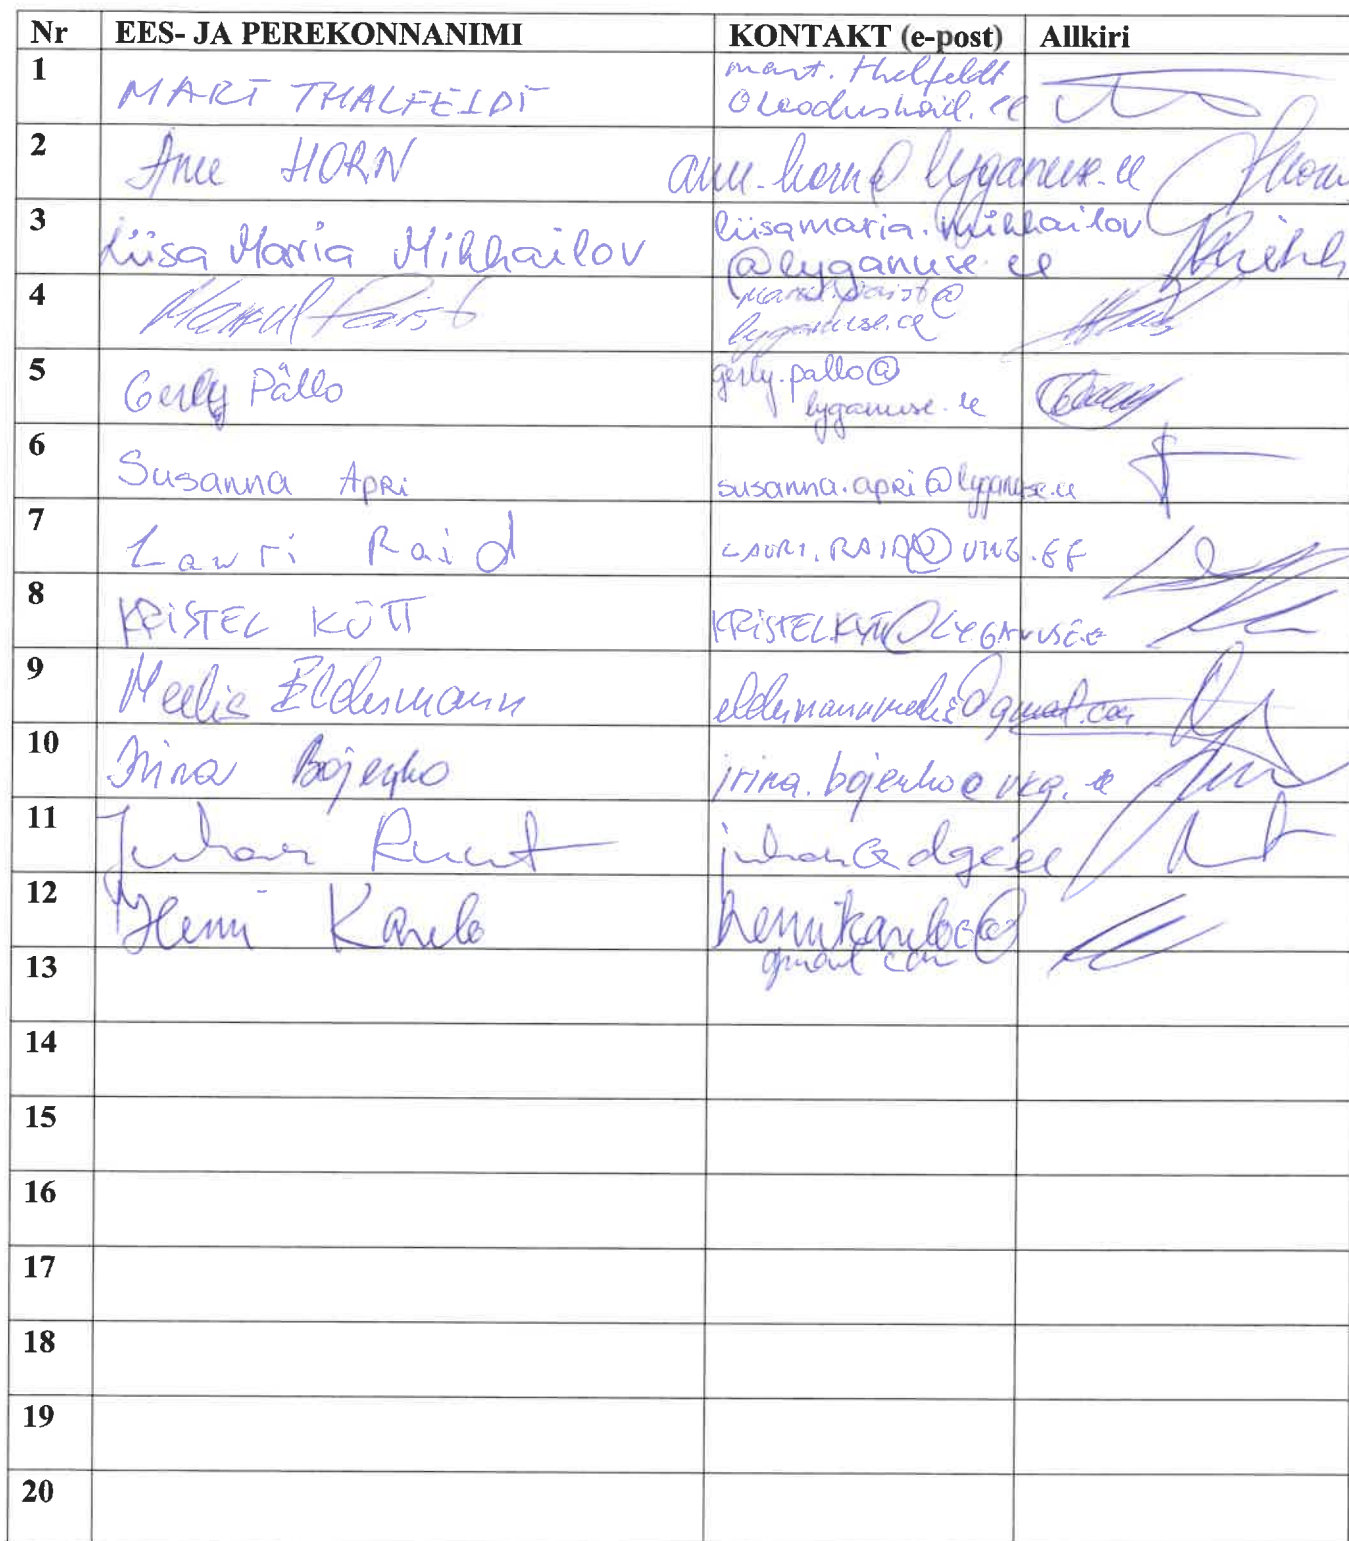 Nr EES- JA PEREKONNANIMI KONTAKT (e-post) Allkiri
1 MART THALFELDT mart.thelfeldt
@loodushoid.ee
2 Anu HORN anu.horn@lyganuse.ee
3 Liisa Maria Mihhailov liisamaria.mihhailov
@lyganuse.ee
4
lyganuse.ee
5 Gerly Pällo gerly.pallo@
lyganuse.ee
6 Susanna Apri susanna.apri@lyganuse.ee
7 Lauri Raid LAURI.RAID@VKG.EE
8 KRISTEL KÜTT KRISTEL.KYTT@LYGANUSE.EE
9 Meelis Eldermann eldermannmeelis@gmail.com
10 Irina Bojenko irina.bojenko@vkg.ee
11 Juhan Ruut juhan@dge.ee
12 Henri Karelo
gmail com
13
14
15
16
17
18
19
20